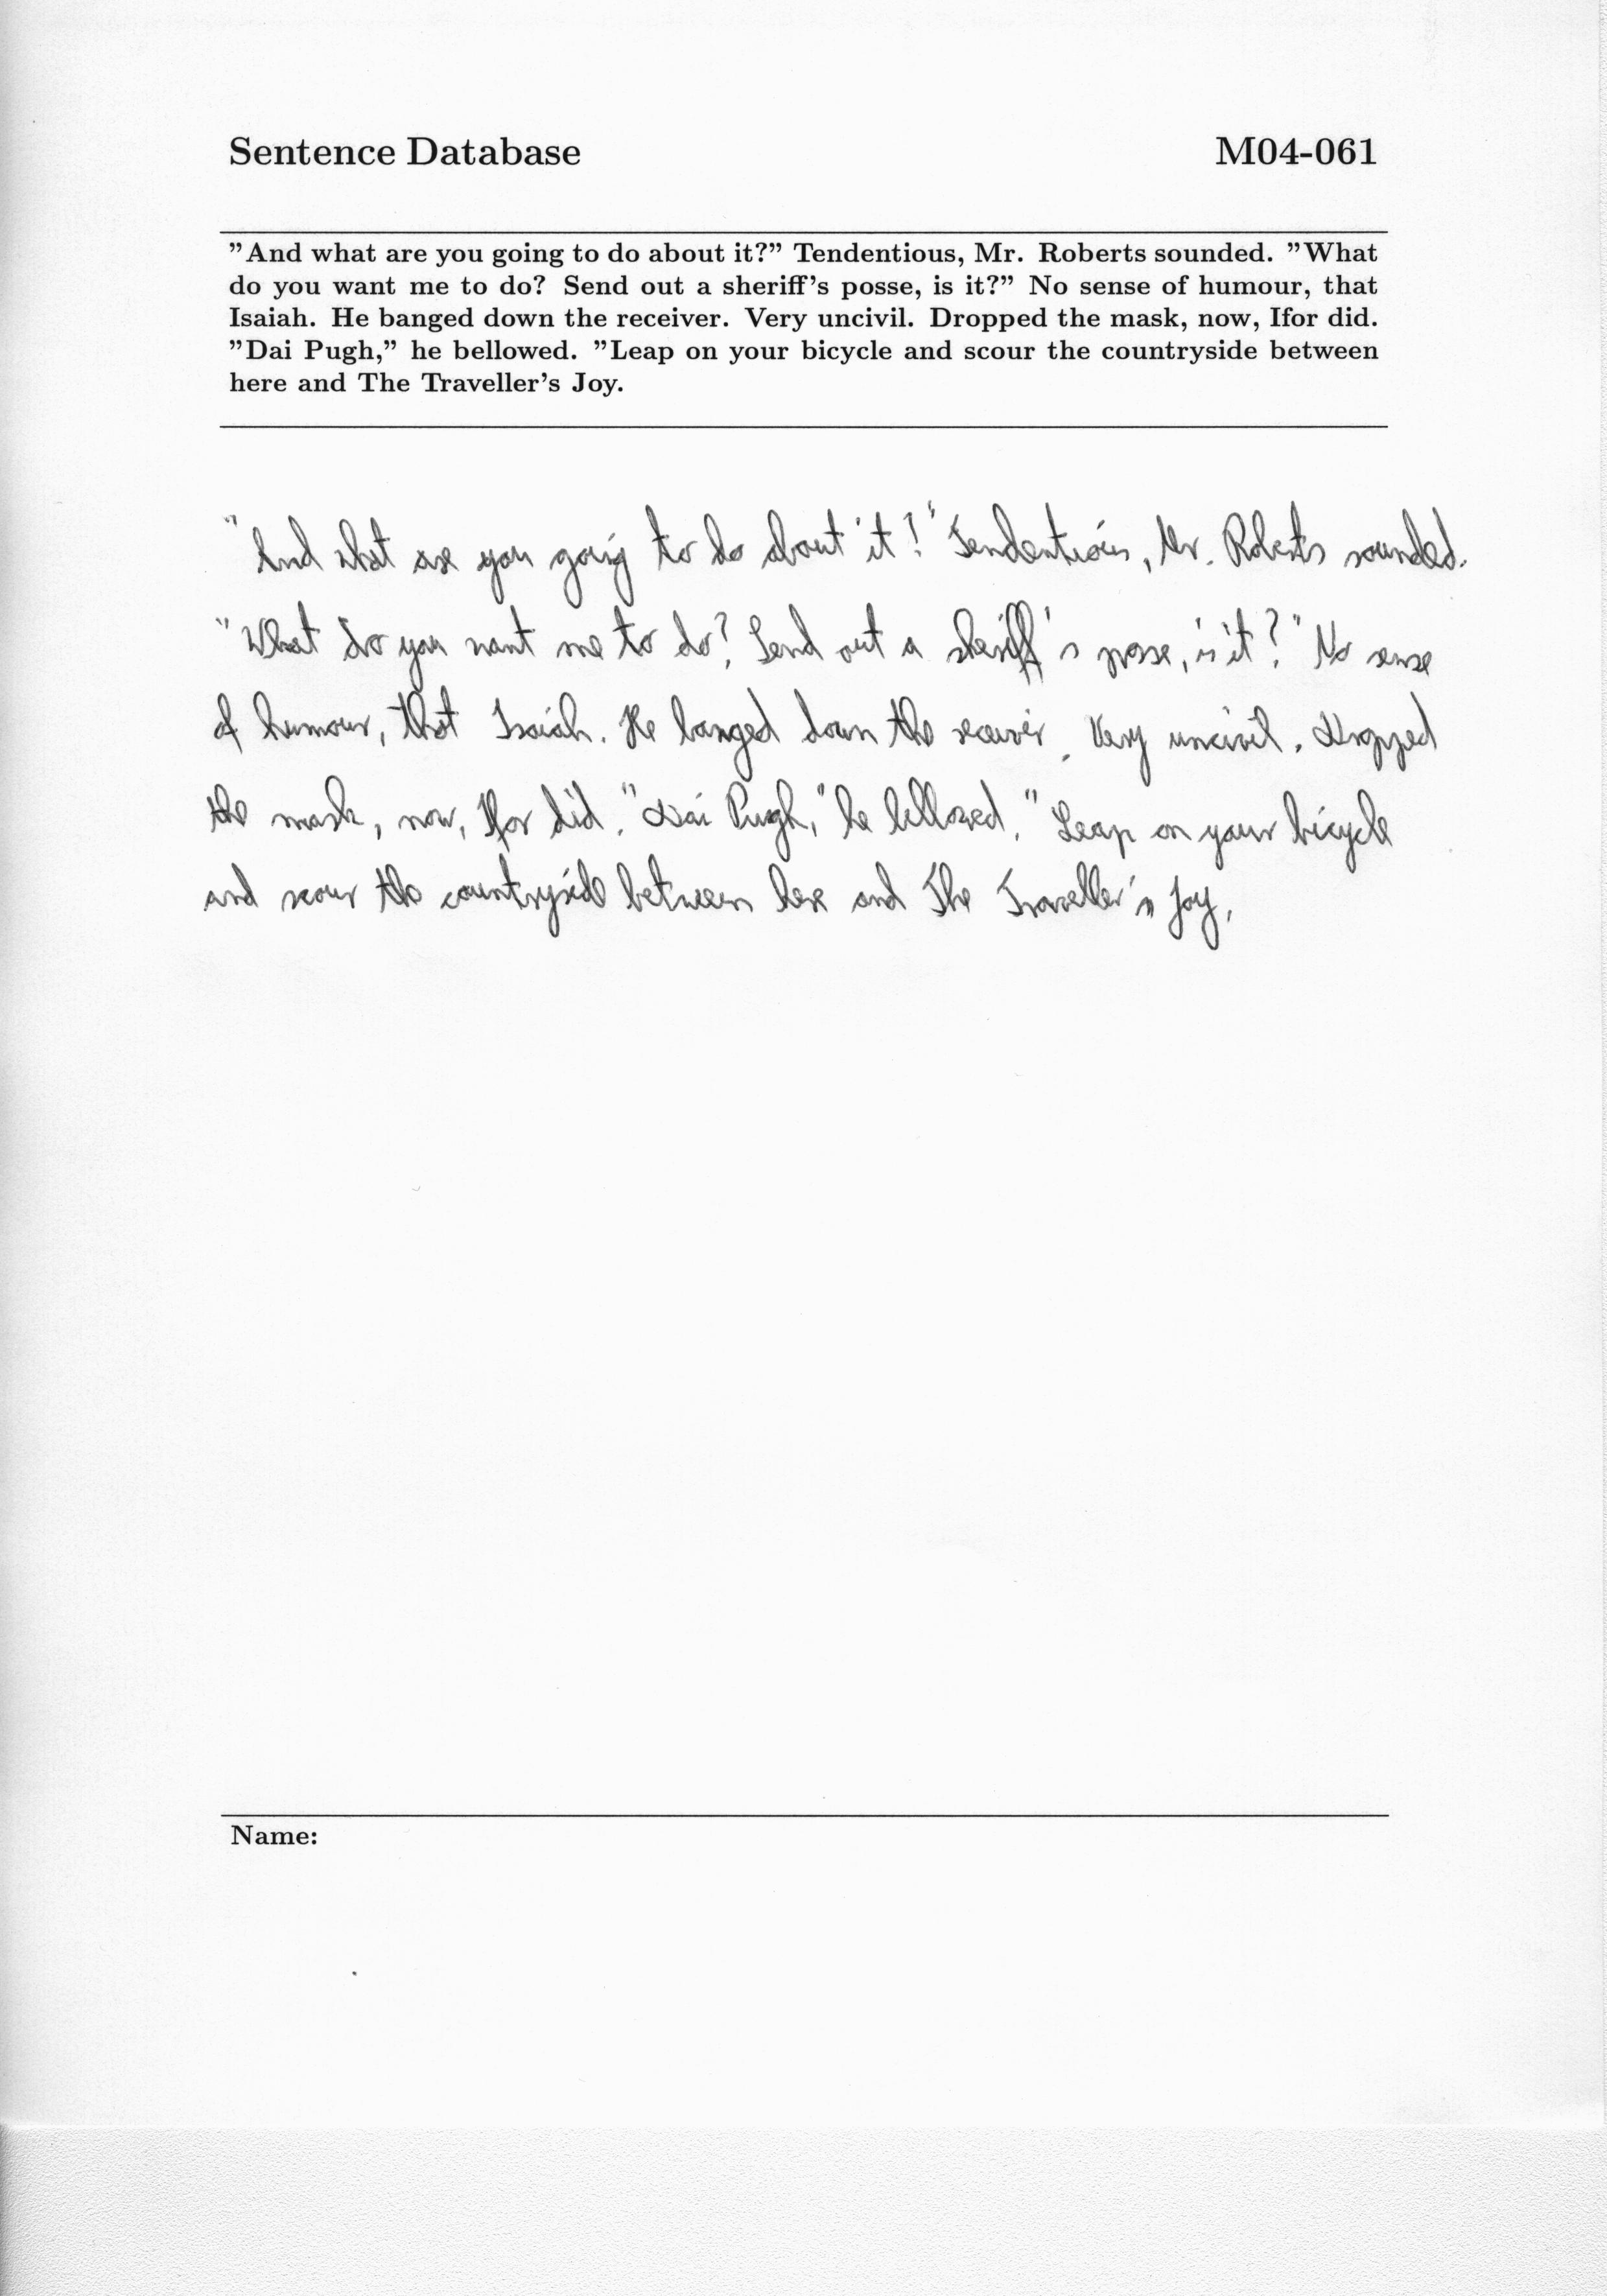 Sentence Database M04-061
"And what are you going to do about it?" Tendentious, Mr. Roberts sounded. "What
do you want me to do? Send out a sheriff's posse, is it?" No sense of humour, that
Isaiah. He banged down the receiver. Very uncivil. Dropped the mask, now, Ifor did.
"Dai Pugh," he bellowed. "Leap on your bicycle and scour the countryside between
here and The Traveller's Joy.
"And what are you going to do about it?" Tendentious, Mr. Roberts sounded.
"What do you want me to do? Send out a sheriff's posse, is it?" No sense
of humour, that Isaiah. He banged down the receiver. Very uncivil. Dropped
the mask, now, Ifor did. "Dai Pugh," he bellowed. "Leap on your bicycle
and scour the countryside between here and The Traveller's Joy.
Name: